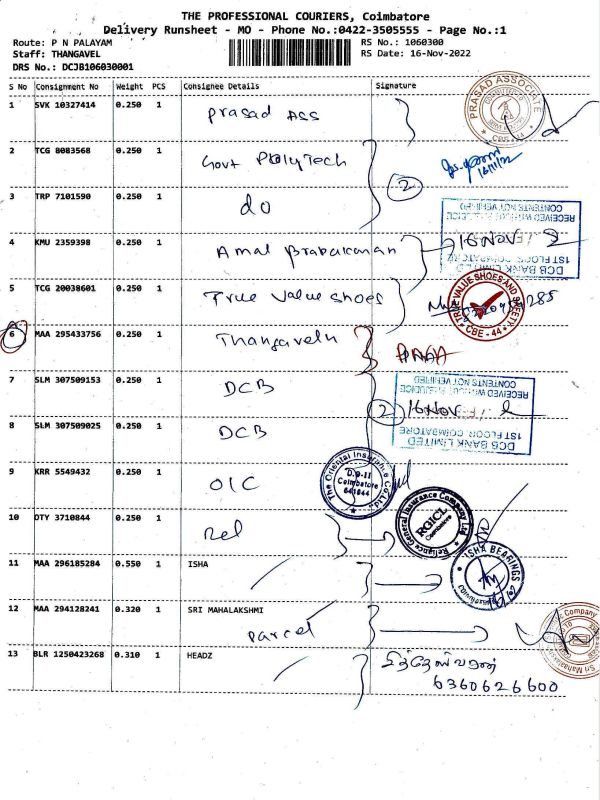 THE PROFESSIONAL COURIERS, Coimbatore
Delivery Runsheet - MO - Phone No.:0422-3505555 - Page No.:1
Route: P N PALAYAM RS No.: 1060300
Staff: THANGAVEL RS Date: 16-Nov-2022
DRS No.: DCJB106030001
S No Consignment No Weight PCS Consignee Details Signature
1 SVK 10327414 0.250 1 Prasad Ass
PRASAD ASSOCIATE
2 TCG 8083568 0.250 1 Govt PolyTech
16/11/22
2
3 TRP 7101590 0.250 1 do
4 KMU 2359398 0.250 1 Amal Prabakaran
DCB BANK LIMITED
1ST FLOOR, COIMBATORE
16 NOV
RECEIVED WITHOUT PREJUDICE
CONTENTS NOT VERIFIED
5 TCG 20038601 0.250 1 True Value Shoes
TRUE VALUE SHOES AND SAFETY
CBE - 44
6 MAA 295433756 0.250 1 Thangavelu
7 SLM 307509153 0.250 1 DCB
2
DCB BANK LIMITED
1ST FLOOR, COIMBATORE
16 NOV
RECEIVED WITHOUT PREJUDICE
CONTENTS NOT VERIFIED
8 SLM 307509025 0.250 1 DCB
9 KRR 5549432 0.250 1 OIC
The Oriental Insurance Co. Ltd.
D.O-II
Coimbatore
641044
10 DTY 3710844 0.250 1 Rel
Reliance General Insurance Company Ltd.
RGICL
Coimbatore
11 MAA 296185284 0.550 1 ISHA
ISHA BEARINGS
12 MAA 294128241 0.320 1 SRI MAHALAKSHMI
Parcel
13 BLR 1250423268 0.310 1 HEADZ
6360626600